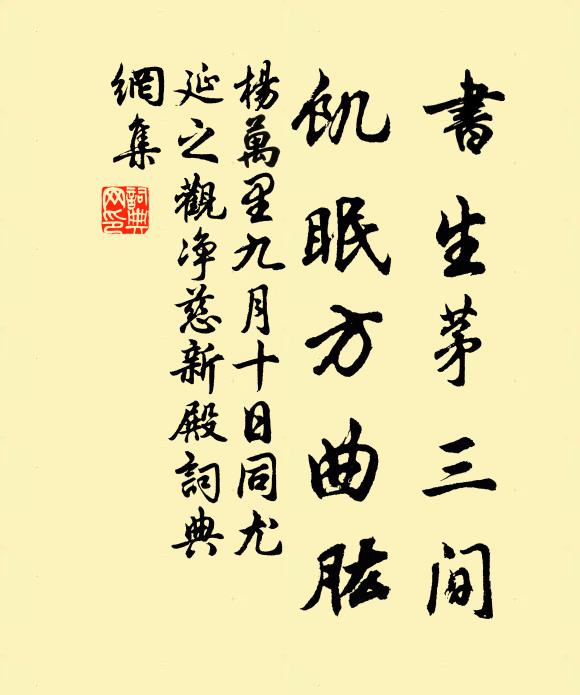 書生茅三间
飢眠方曲肱
楊萬里九月十日同尤
延之觀净慈新殿詞典
網集
詞典
网印